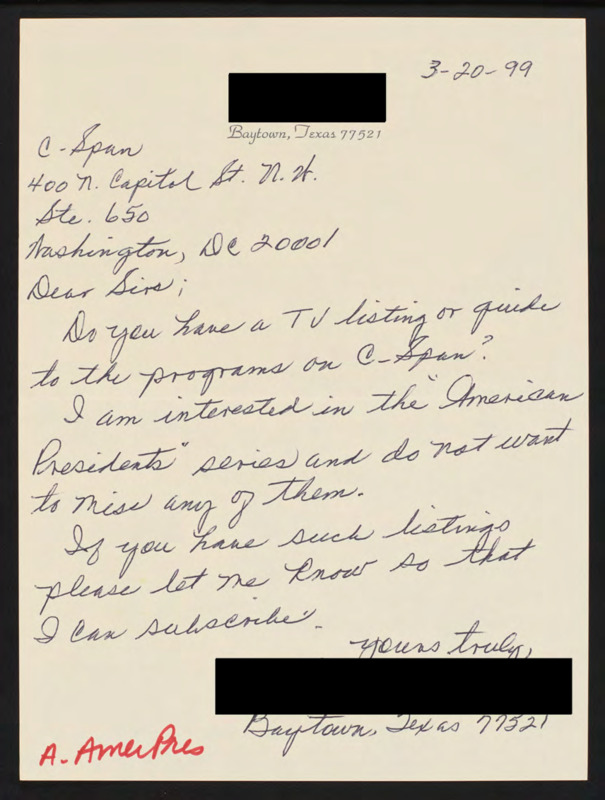 3-20-99
Baytown, Texas 77521
C-Span
400 N. Capitol St. N.W.
Ste. 650
Washington, DC 20001
Dear Sirs;
Do you have a TV listing or guide
to the programs on C-Span?
I am interested in the "American
Presidents" series and do not want
to miss any of them.
If you have such listings
please let me know so that
I can subscribe.
Yours truly,
Baytown, Texas 77521
A. AmerPres